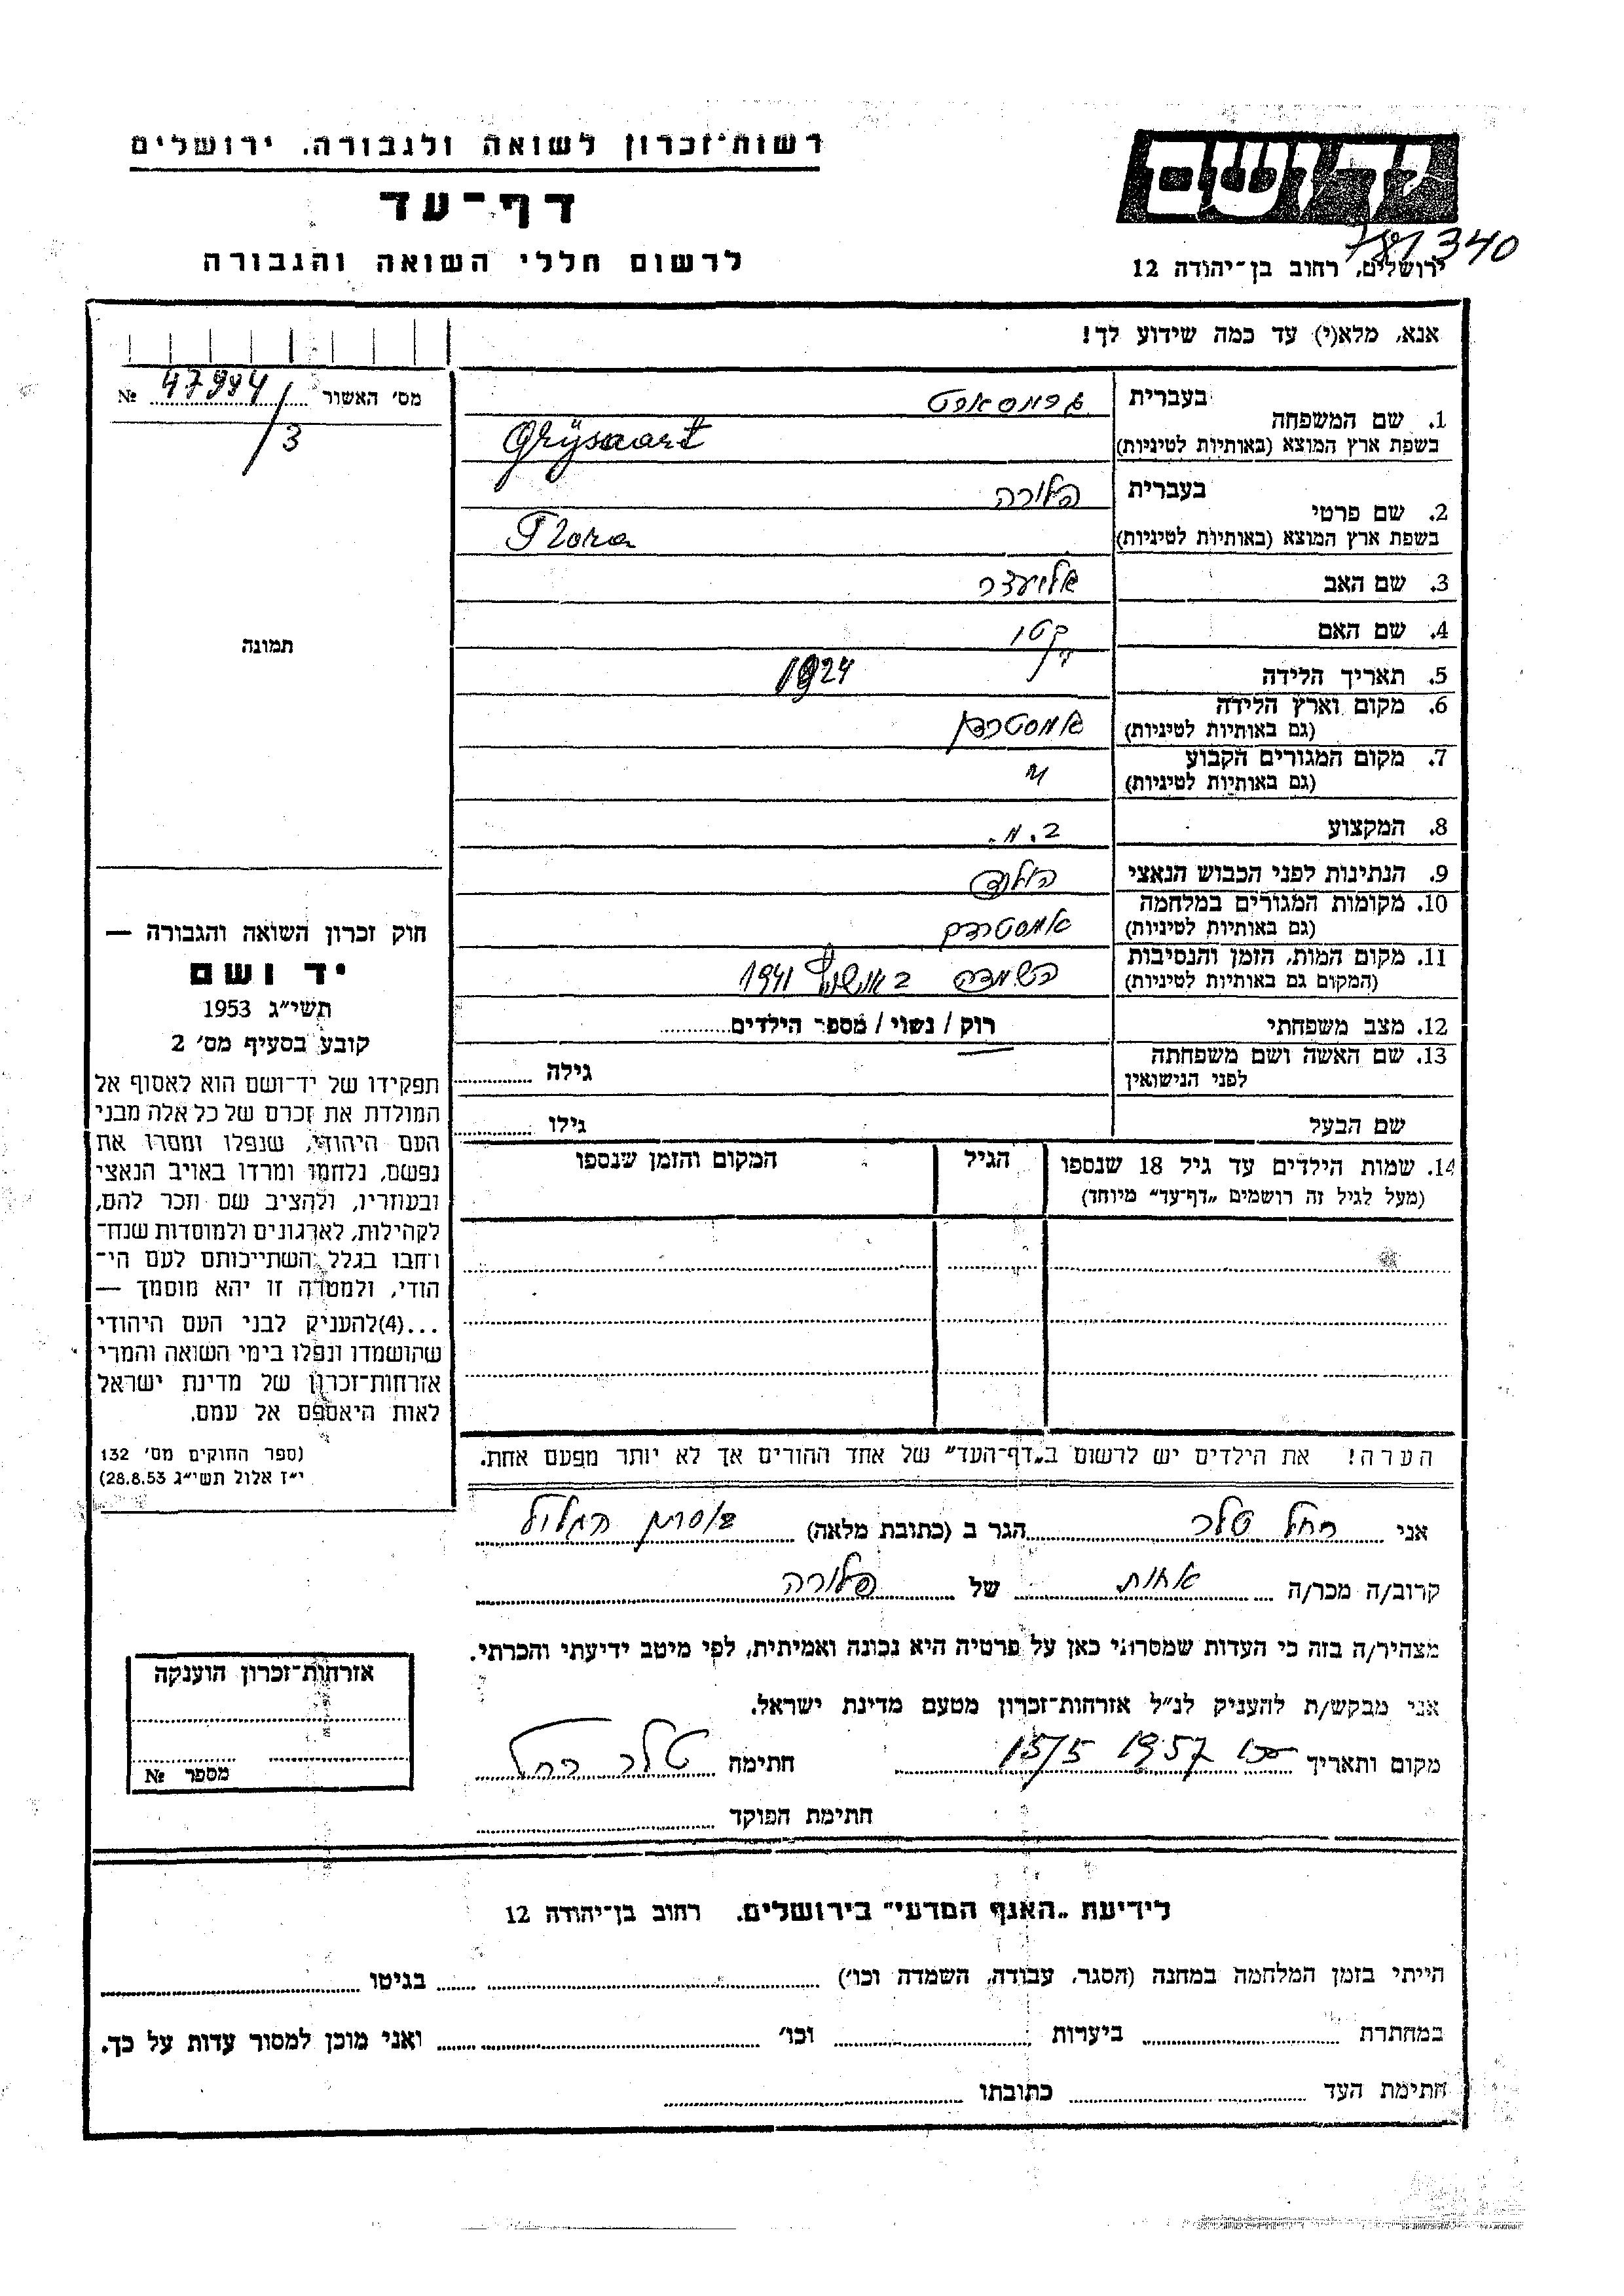 רשות־זכרון לשואה ולגבורה. ירושלים
דף־עד
לרשום חללי השואה והגבורה
יד ושם
781340
ירושלים, רחוב בן־יהודה 12
אנא, מלא(י) עד כמה שידוע לך!
מס' האשור 47984 №
/3
תמונה
בעברית
1. שם המשפחה
בשפת ארץ המוצא (באותיות לטיניות) Grijsaart
בעברית פלורה
2. שם פרטי
בשפת ארץ המוצא (באותיות לטיניות) Flora
3. שם האב אליעזר
4. שם האם
5. תאריך הלידה 1924
6. מקום וארץ הלידה
(גם באותיות לטיניות) אמסטרדם
7. מקום המגורים הקבוע
(גם באותיות לטיניות) "
8. המקצוע
9. הנתינות לפני הכבוש הנאצי הולנד
10. מקומות המגורים במלחמה
(גם באותיות לטיניות) אמסטרדם
11. מקום המות, הזמן והנסיבות
(המקום גם באותיות לטיניות) השמדה 1941
12. מצב משפחתי רוק / נשוי / מספר הילדים
13. שם האשה ושם משפחתה
לפני הנישואין גילה
שם הבעל גילו
14. שמות הילדים עד גיל 18 שנספו הגיל המקום והזמן שנספו
(מעל לגיל זה רושמים „דף־עד" מיוחד)
הערה! את הילדים יש לרשום ב„דף־העד" של אחד ההורים אך לא יותר מפעם אחת.
חוק זכרון השואה והגבורה —
יד ושם
תשי"ג 1953
קובע בסעיף מס' 2
תפקידו של יד־ושם הוא לאסוף אל
המולדת את זכרם של כל אלה מבני
העם היהודי, שנפלו ומסרו את
נפשם, נלחמו ומרדו באויב הנאצי
ובעוזריו, ולהציב שם וזכר להם,
לקהילות, לארגונים ולמוסדות שנח־
רחבו בגלל השתייכותם לעם הי־
הודי, ולמטרה זו יהא מוסמך —
...(4)להעניק לבני העם היהודי
שהושמדו ונפלו בימי השואה והמרי
אזרחות־זכרון של מדינת ישראל
לאות היאספם אל עמם.
(ספר החוקים מס' 132
י"ז אלול תשי"ג 28.8.53)
אני רחל טלר הגר ב (כתובת מלאה) הגליל
קרוב/ה מכר/ה אחות של פלורה
מצהיר/ה בזה כי העדות שמסרתי כאן על פרטיה היא נכונה ואמיתית, לפי מיטב ידיעתי והכרתי.
אני מבקש/ת להעניק לנ"ל אזרחות־זכרון מטעם מדינת ישראל.
מקום ותאריך 15/5 1957 חתימה טלר רחל
חתימת הפוקד
אזרחות־זכרון הוענקה
מספר №
לידיעת „האגף המדעי" בירושלים. רחוב בן־יהודה 12
הייתי בזמן המלחמה במחנה (הסגר, עבודה, השמדה וכו') בגיטו
במחתרת ביערות וכו' ואני מוכן למסור עדות על כך.
חתימת העד כתובתו